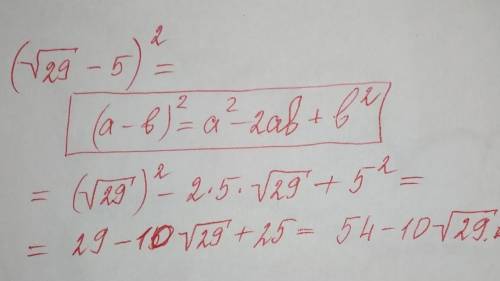 (√29 − 5)² =
(a − b)² = a² − 2ab + b²
= (√29)² − 2·5·√29 + 5² =
= 29 − 10√29 + 25 = 54 − 10√29.